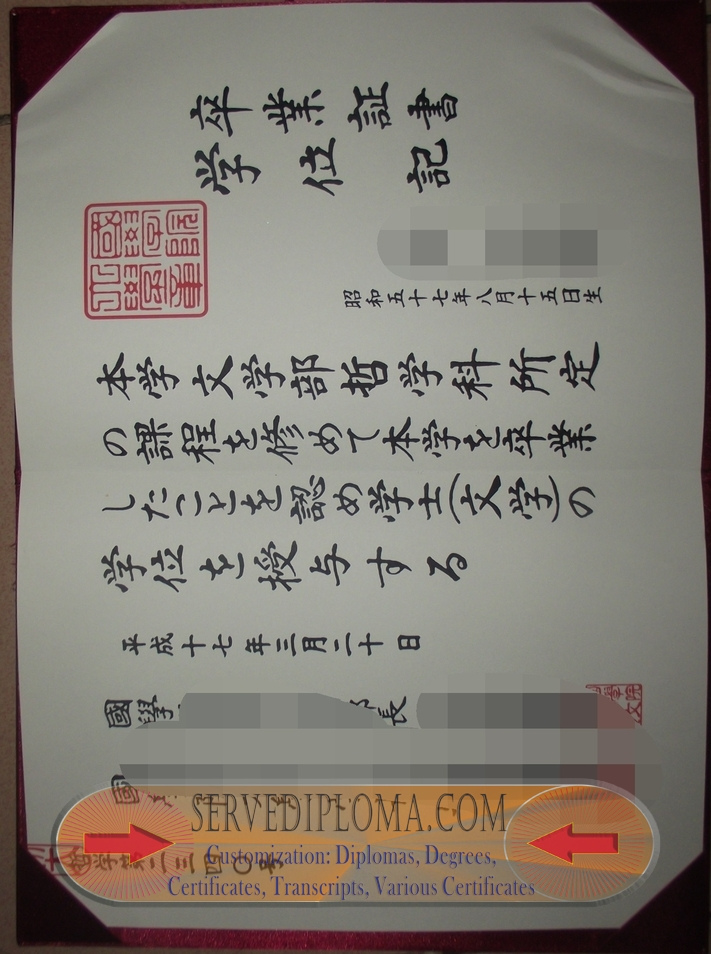 卒業証書
学位記
昭和五十七年八月十五日生
本学文学部哲学科所定
の課程を修めて本学を卒業
したことを認め学士(文学)の
学位を授与する
平成十七年三月二十日
國學
長
國
SERVEDIPLOMA.COM
Customization: Diplomas, Degrees,
Certificates, Transcripts, Various Certificates